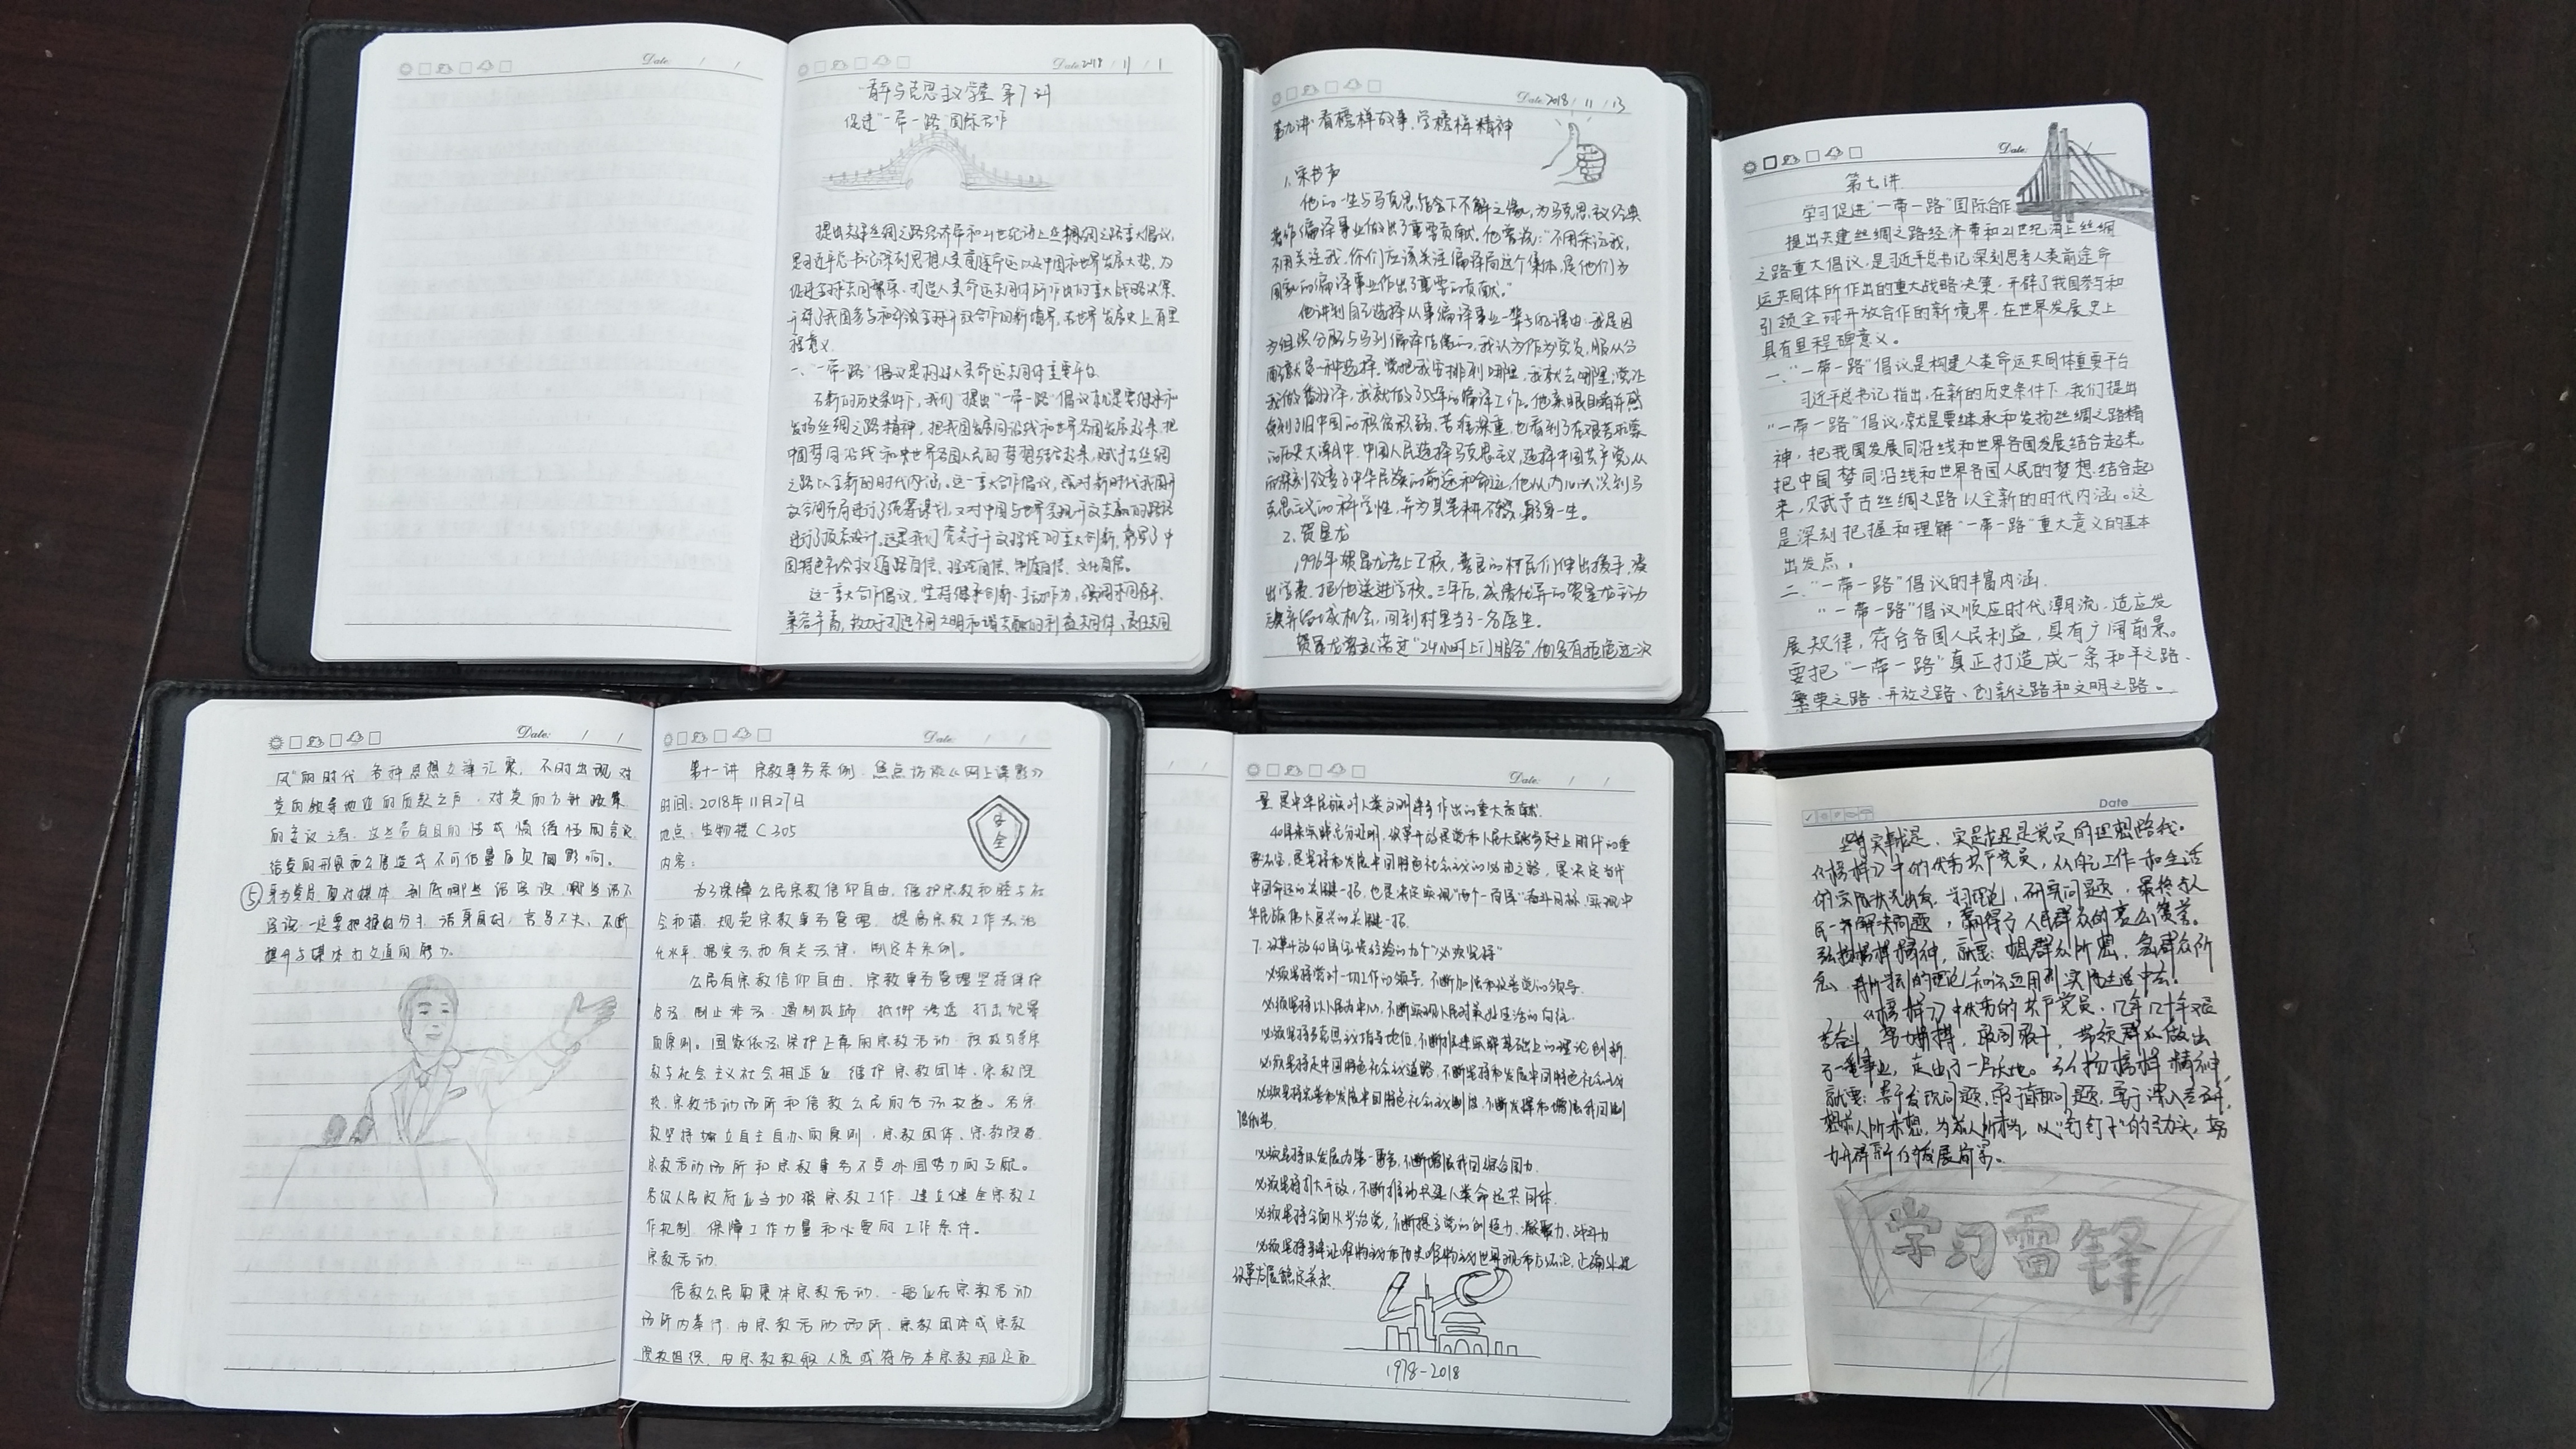 Date: 2018 / 11 / 1
青年马克思主义学堂 第7讲
促进"一带一路"国际合作
提出共建丝绸之路经济带和21世纪海上丝绸之路重大倡议,
是习近平总书记深刻思想人类前途命运以及中国和世界发展大势,为
促进全球共同繁荣、打造人类命运共同体所作出的重大战略决策、
开辟了我国参与和引领全球开放合作的新境界,在世界发展史上有里
程意义.
一、"一带一路"倡议是构建人类命运共同体重要平台
在新的历史条件下,我们提出"一带一路"倡议就是要继承和
发扬丝绸之路精神,把我国发展同沿线和世界各国发展起来,把
中国梦同沿线和世界各国人民的梦想结合起来,赋予古丝绸
之路以全新的时代内涵。这一重大合作倡议,既对新时代我国开
放空间布局进行了统筹谋划,又对中国与世界实现开放共赢的路径
进行了顶层设计,这是我们党关于开放理论的重大创新,彰显了中
国特色社会主义道路自信、理论自信、制度自信、文化自信。
这一重大合作倡议,坚持继承创新、主动作为,强调求同存异、
兼容并蓄,致力于打造不同文明和谐共融的利益共同体、责任共同
Date: 2018 / 11 / 13
第九讲 看榜样故事,学榜样精神
1.宋书声
他的一生与马克思结下不解之缘,为马克思主义经典
著作编译事业做出了重要贡献。他常说:"不用采访我,
不用关注我,你们应该关注编译局这个集体,是他们为
国家的编译事业作出了重要的贡献。"
他讲到自己选择从事编译事业一辈子的理由:我是因
为组织分配与马列编译结缘的,我认为作为党员,服从分
配就是一种选择。党把我安排到哪里,我就去哪里;党让
我做翻译,我就做了55年的编译工作。他亲眼目睹并感
受到了旧中国的积贫积弱、苦难深重,也看到了在艰苦
的历史大潮中,中国人民选择马克思主义,选择中国共产党,从
而深刻改变了中华民族的前途和命运,他从内心认识到马
克思主义的科学性,并为其笔耕不辍,躬身一生。
2.贺星龙
1996年贺星龙考上卫校,善良的村民们伸出援手,凑
出学费,把他送进学校。三年后,成绩优异的贺星龙主动
放弃留城机会,回到村里当了一名医生。
贺星龙曾承诺过"24小时上门服务",他没有拒绝过一次
Date:
第七讲
学习促进"一带一路"国际合作
提出共建丝绸之路经济带和21世纪海上丝绸
之路重大倡议,是习近平总书记深刻思考人类前途命
运共同体所作出的重大战略决策,开辟了我国参与和
引领全球开放合作的新境界,在世界发展史上
具有里程碑意义。
一、"一带一路"倡议是构建人类命运共同体重要平台
习近平总书记指出,在新的历史条件下,我们提出
"一带一路"倡议,就是要继承和发扬丝绸之路精
神,把我国发展同沿线和世界各国发展结合起来,
把中国梦同沿线和世界各国人民的梦想结合起
来,赋予古丝绸之路以全新的时代内涵。这
是深刻把握和理解"一带一路"重大意义的基本
出发点。
二、"一带一路"倡议的丰富内涵.
"一带一路"倡议顺应时代潮流、适应发
展规律,符合各国人民利益,具有广阔前景。
要把"一带一路"真正打造成一条和平之路、
繁荣之路、开放之路、创新之路和文明之路。
Date:
风"的时代,各种思想文译汇聚,不时出现对
党的领导地位的质疑之声,对党的方针政策
的妄议之举,这些带有目的性或情绪性的言论
给党的形象和公信造成不可估量的负面影响。
⑤身为党员,面对媒体,到底哪些话应该说,哪些话不
应说,一定要把握好分寸,洁身自好,言多不失,不断
提升与媒体打交道的能力。
Date:
第十一讲 宗教事务条例、焦点访谈《网上谍影》
时间:2018年11月27日
地点:生物楼C305
安全
内容:
为了保障公民宗教信仰自由,维护宗教和睦与社
会和谐,规范宗教事务管理,提高宗教工作法治
化水平,据宪法和有关法律,制定本条例。
公民有宗教信仰自由。宗教事务管理坚持保护
合法、制止非法、遏制极端、抵御渗透、打击犯罪
的原则。国家依法保护正常的宗教活动,积极引导宗
教与社会主义社会相适应,维护宗教团体、宗教院
校、宗教活动场所和信教公民的合法权益。各宗
教坚持独立自主自办的原则,宗教团体、宗教院校、
宗教活动场所和宗教事务不受外国势力的支配。
各级人民政府应当加强宗教工作,建立健全宗教工
作机制,保障工作力量和必要的工作条件。
宗教活动
信教公民的集体宗教活动,一般应在宗教活动
场所内举行,由宗教活动场所、宗教团体或宗教
院校组织,由宗教教职人员或符合本宗教规定的
Date:
量,是中华民族对人类文明进步作出的重大贡献.
40年来实践充分证明,改革开放是党和人民大踏步赶上时代的重
要法宝,是坚持和发展中国特色社会主义的必由之路,是决定当代
中国命运的关键一招,也是决定实现"两个一百年"奋斗目标、实现中
华民族伟大复兴的关键一招.
7.改革开放40周年宝贵经验的九个"必须坚持"
必须坚持党对一切工作的领导,不断加强和改善党的领导.
必须坚持以人民为中心,不断实现人民对美好生活的向往.
必须坚持马克思主义指导地位,不断推进实践基础上的理论创新.
必须坚持走中国特色社会主义道路,不断坚持和发展中国特色社会主义
必须坚持完善和发展中国特色社会主义制度,不断发挥和增强我国制
度优势.
必须坚持以发展为第一要务,不断增强我国综合国力.
必须坚持扩大开放,不断推动共建人类命运共同体.
必须坚持全面从严治党,不断提高党的创造力、凝聚力、战斗力
必须坚持辩证唯物主义和历史唯物主义世界观和方法论,正确处理
改革发展稳定关系.
1978-2018
Date
坚持实事求是,实是求是是党员的思想路线。
《榜样》中的优秀共产党员,从自己工作和生活
的实际状况出发,学习理论,研究问题,最终为人
民一并解决问题,赢得了人民群众的高度赞誉。
弘扬榜样精神,就要:想群众所想,急群众所
急,将所学到的理论知识运用到实际生活中去!
《榜样》中优秀的共产党员,几年几十年艰
苦奋斗,努力拼搏,敢闯敢干,带领群众做出
了一番事业,走出了一片天地。弘扬榜样精神,
就要:善于发现问题,敢于直面问题,勇于深入查研,
想前人所未想,为前人所未为,以"钉钉子"的劲头,努
力开辟新的发展前景。
学习雷锋